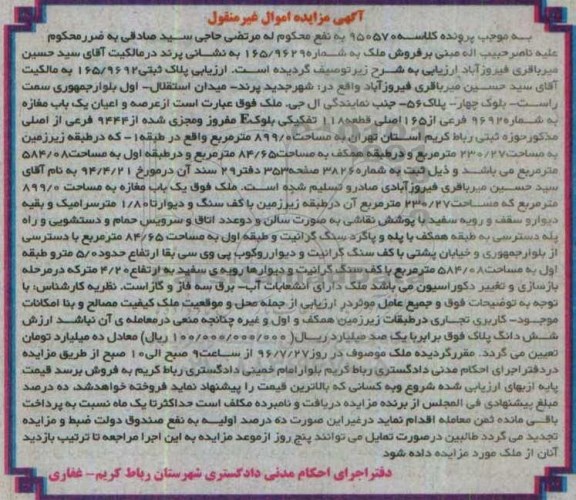 آگهی مزایده اموال غیرمنقول
به موجب پرونده کلاسه ۹۵۰۵۷۰ به نفع محکوم له مرتضی حاجی سید صادقی به ضرر محکوم
علیه ناصر حبیب اله مبنی بر فروش ملک به شماره ۱۶۵/۹۶۲۹ به نشانی پرند در مالکیت آقای سید حسین
میرباقری فیروزآباد ارزیابی به شرح زیر توصیف گردیده است. ارزیابی پلاک ثبتی ۱۶۵/۹۶۹۲ به مالکیت
آقای سید حسین میرباقری فیروزآباد واقع در: شهرجدید پرند- میدان استقلال- اول بلوار جمهوری سمت
راست- بلوک چهار- پلاک ۵۶- جنب نمایندگی ال جی. ملک فوق عبارت است از عرصه و اعیان یک باب مغازه
به شماره ۹۶۹۲ فرعی از ۱۶۵ اصلی قطعه ۱۱۸ تفکیکی بلوک E مفروز ومجزی شده از ۹۴۴۴ فرعی از اصلی
مذکور حوزه ثبتی رباط کریم استان تهران به مساحت ۸۹۹/۰ مترمربع واقع در طبقه ۱- که درطبقه زیرزمین
به مساحت ۲۳۰/۲۷ مترمربع و درطبقه همکف به مساحت ۸۴/۶۵ مترمربع و درطبقه اول به مساحت ۵۸۴/۰۸
مترمربع می باشد و ذیل ثبت به شماره ۳۸۲۶ صفحه ۳۵۳ دفتر ۲۹ سند آن درمورخ ۹۴/۴/۲۱ به نام آقای
سید حسین میرباقری فیروزآبادی صادر و تسلیم شده است. ملک فوق یک باب مغازه به مساحت ۸۹۹/۰
مترمربع که مساحت ۲۳۰/۲۷ مترمربع آن درطبقه زیرزمین با کف سنگ و دیوار تا ۱/۸۰ متر سرامیک و بقیه
دیوار و سقف و رویه سفید با پوشش نقاشی به صورت سالن و دو عدد اتاق و سرویس حمام و دستشویی و راه
پله دسترسی به طبقه همکف با پله و پاگرد سنگ گرانیت و طبقه اول به مساحت ۸۴/۶۵ مترمربع با دسترسی
از بلوار جمهوری و خیابان پشتی با کف سنگ گرانیت و دیوار روکوب پی وی سی بقا ارتفاع حدود ۵/۰ متر و طبقه
اول به مساحت ۵۸۴/۰۸ مترمربع با کف سنگ گرانیت و دیوارها رویه ی سفید به ارتفاع ۴/۲۰ متر که درمرحله
بازسازی و تغییر دکوراسیون می باشد ملک دارای انشعابات آب- برق سه فاز و گاز است. نظریه کارشناس: با
توجه به توضیحات فوق و جمیع عامل موثر در ارزیابی از جمله محل و موقعیت ملک کیفیت مصالح و بنا امکانات
موجود- کاربری تجاری درطبقات زیرزمین همکف و اول و غیره چنانچه منعی درمعامله ی آن نباشد ارزش
شش دانگ پلاک فوق برابر با یک صد میلیارد ریال (۱۰۰/۰۰۰/۰۰۰/۰۰۰ ریال) معادل ده میلیارد تومان
تعیین می گردد. مقرر گردیده ملک موصوف در روز ۹۶/۷/۲۷ از ساعت ۹ صبح الی ۱۰ صبح از طریق مزایده
دردفتر اجرای احکام مدنی دادگستری رباط کریم بلوار امام خمینی دادگستری رباط کریم به فروش برسد قیمت
پایه از بهای ارزیابی شده شروع وبه کسانی که بالاترین قیمت را پیشنهاد نماید فروخته خواهد شد. ده درصد
مبلغ پیشنهادی فی المجلس از برنده مزایده دریافت و نامبرده مکلف است حداکثر تا یک ماه نسبت به پرداخت
باقی مانده ثمن معامله اقدام نماید درغیر این صورت ده درصد اولیه به نفع صندوق دولت ضبط و مزایده
تجدید می گردد طالبین درصورت تمایل می توانند پنج روز از موعد مزایده به این اجرا مراجعه تا ترتیب بازدید
آنان از ملک مورد مزایده داده شود
دفتر اجرای احکام مدنی دادگستری شهرستان رباط کریم- غفاری